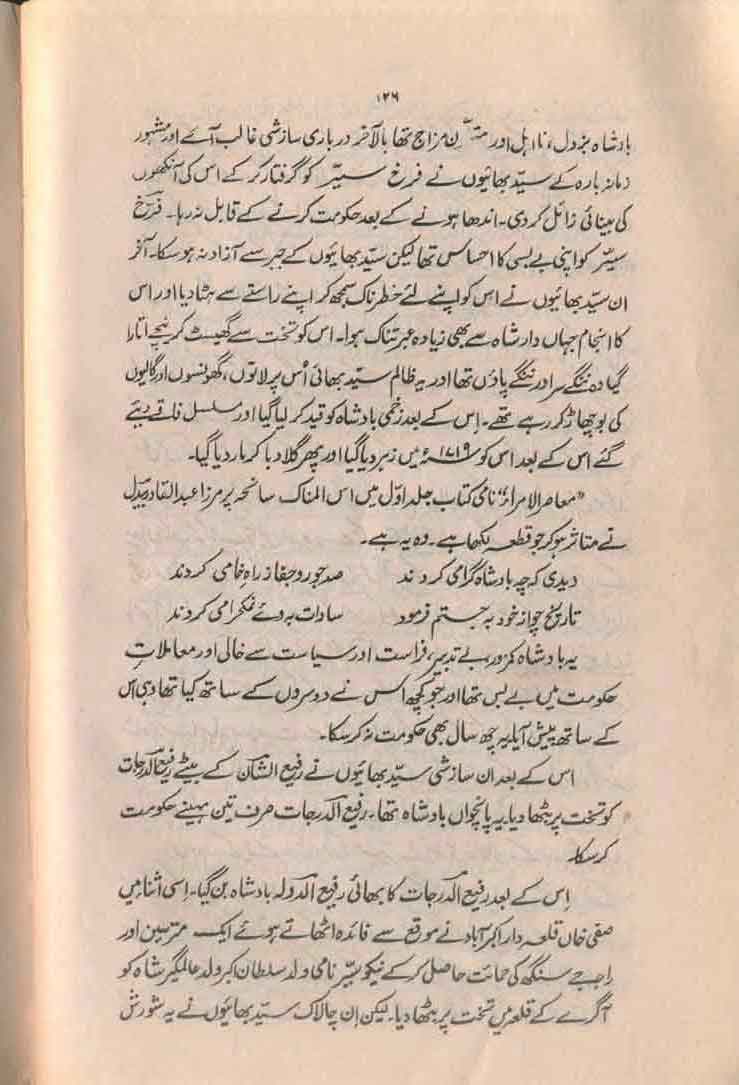 ۱۲۶
بادشاہ بزدل، نا اہل اور متلّون مزاج تھا بالآخر درباری سازشی غالب آئے اور مشہور
زمانہ بارہ کے سیّد بھائیوں نے فرخ سیّر کو گرفتار کر کے اس کی آنکھوں
کی بینائی زائل کر دی۔ اندھا ہونے کے بعد حکومت کرنے کے قابل نہ رہا۔ فرّخ
سیّر کو اپنی بے بسی کا احساس تھا لیکن سیّد بھائیوں کے جبر سے آزاد نہ ہو سکا۔ آخر
ان سیّد بھائیوں نے اس کو اپنے لئے خطرناک سمجھ کر اپنے راستے سے ہٹا دیا اور اس
کا انجام جہاں دار شاہ سے بھی زیادہ عبرتناک ہوا۔ اس کو تخت سے گھسیٹ کر نیچے اتارا
گیا وہ ننگے سر اور ننگے پاؤں تھا اور یہ ظالم سیّد بھائی اُس پر لاتوں، گھونسوں اور گالیوں
کی بوچھاڑ کر رہے تھے۔ اِس کے بعد زخمی بادشاہ کو قید کر لیا گیا اور مسلسل فاقے دیئے
گئے اس کے بعد اس کو ۱۷۱۹ء میں زہر دیا گیا اور پھر گلا دبا کر مار دیا گیا۔
"معاصر الامراء" نامی کتاب جلد اوّل میں اس المناک سانحہ پر مرزا عبدالقادر بیدل
نے متاثر ہو کر جو قطعہ لکھا ہے۔ وہ یہ ہے۔
دیدی کہ چہ بادشاہ گرامی کردند صد جور و جفا ز راہ خامی کردند
تاریخ چو از خود بہ جستم فرمود سادات بہ وئے نمکحرامی کردند
یہ بادشاہ کمزور، بے تدبیر، فراست اور سیاست سے خالی اور معاملاتِ
حکومت میں بے بس تھا اور جو کچھ اس نے دوسروں کے ساتھ کیا تھا وہی اس
کے ساتھ پیش آیا۔ یہ چھ سال بھی حکومت نہ کر سکا۔
اس کے بعد ان سازشی سیّد بھائیوں نے رفیع الشّان کے بیٹے رفیع الدّرجات
کو تخت پر بٹھا دیا۔ یہ پانچواں بادشاہ تھا۔ رفیع الدّرجات صرف تین مہینے حکومت
کر سکا۔
اِس کے بعد رفیع الدّرجات کا بھائی رفیع الدّولہ بادشاہ بن گیا۔ اِسی اثنا میں
صفی خاں قلعہ دار اکبرآباد نے موقع سے فائدہ اٹھاتے ہوئے ایک متربین اور
راجے سنگھ کی حمائت حاصل کر کے نیکو سیّر نامی ولد سلطان اکبر ولد عالمگیر شاہ کو
آگرے کے قلعہ میں تخت پر بٹھا دیا۔ لیکن اِن چالاک سیّد بھائیوں نے یہ شورش